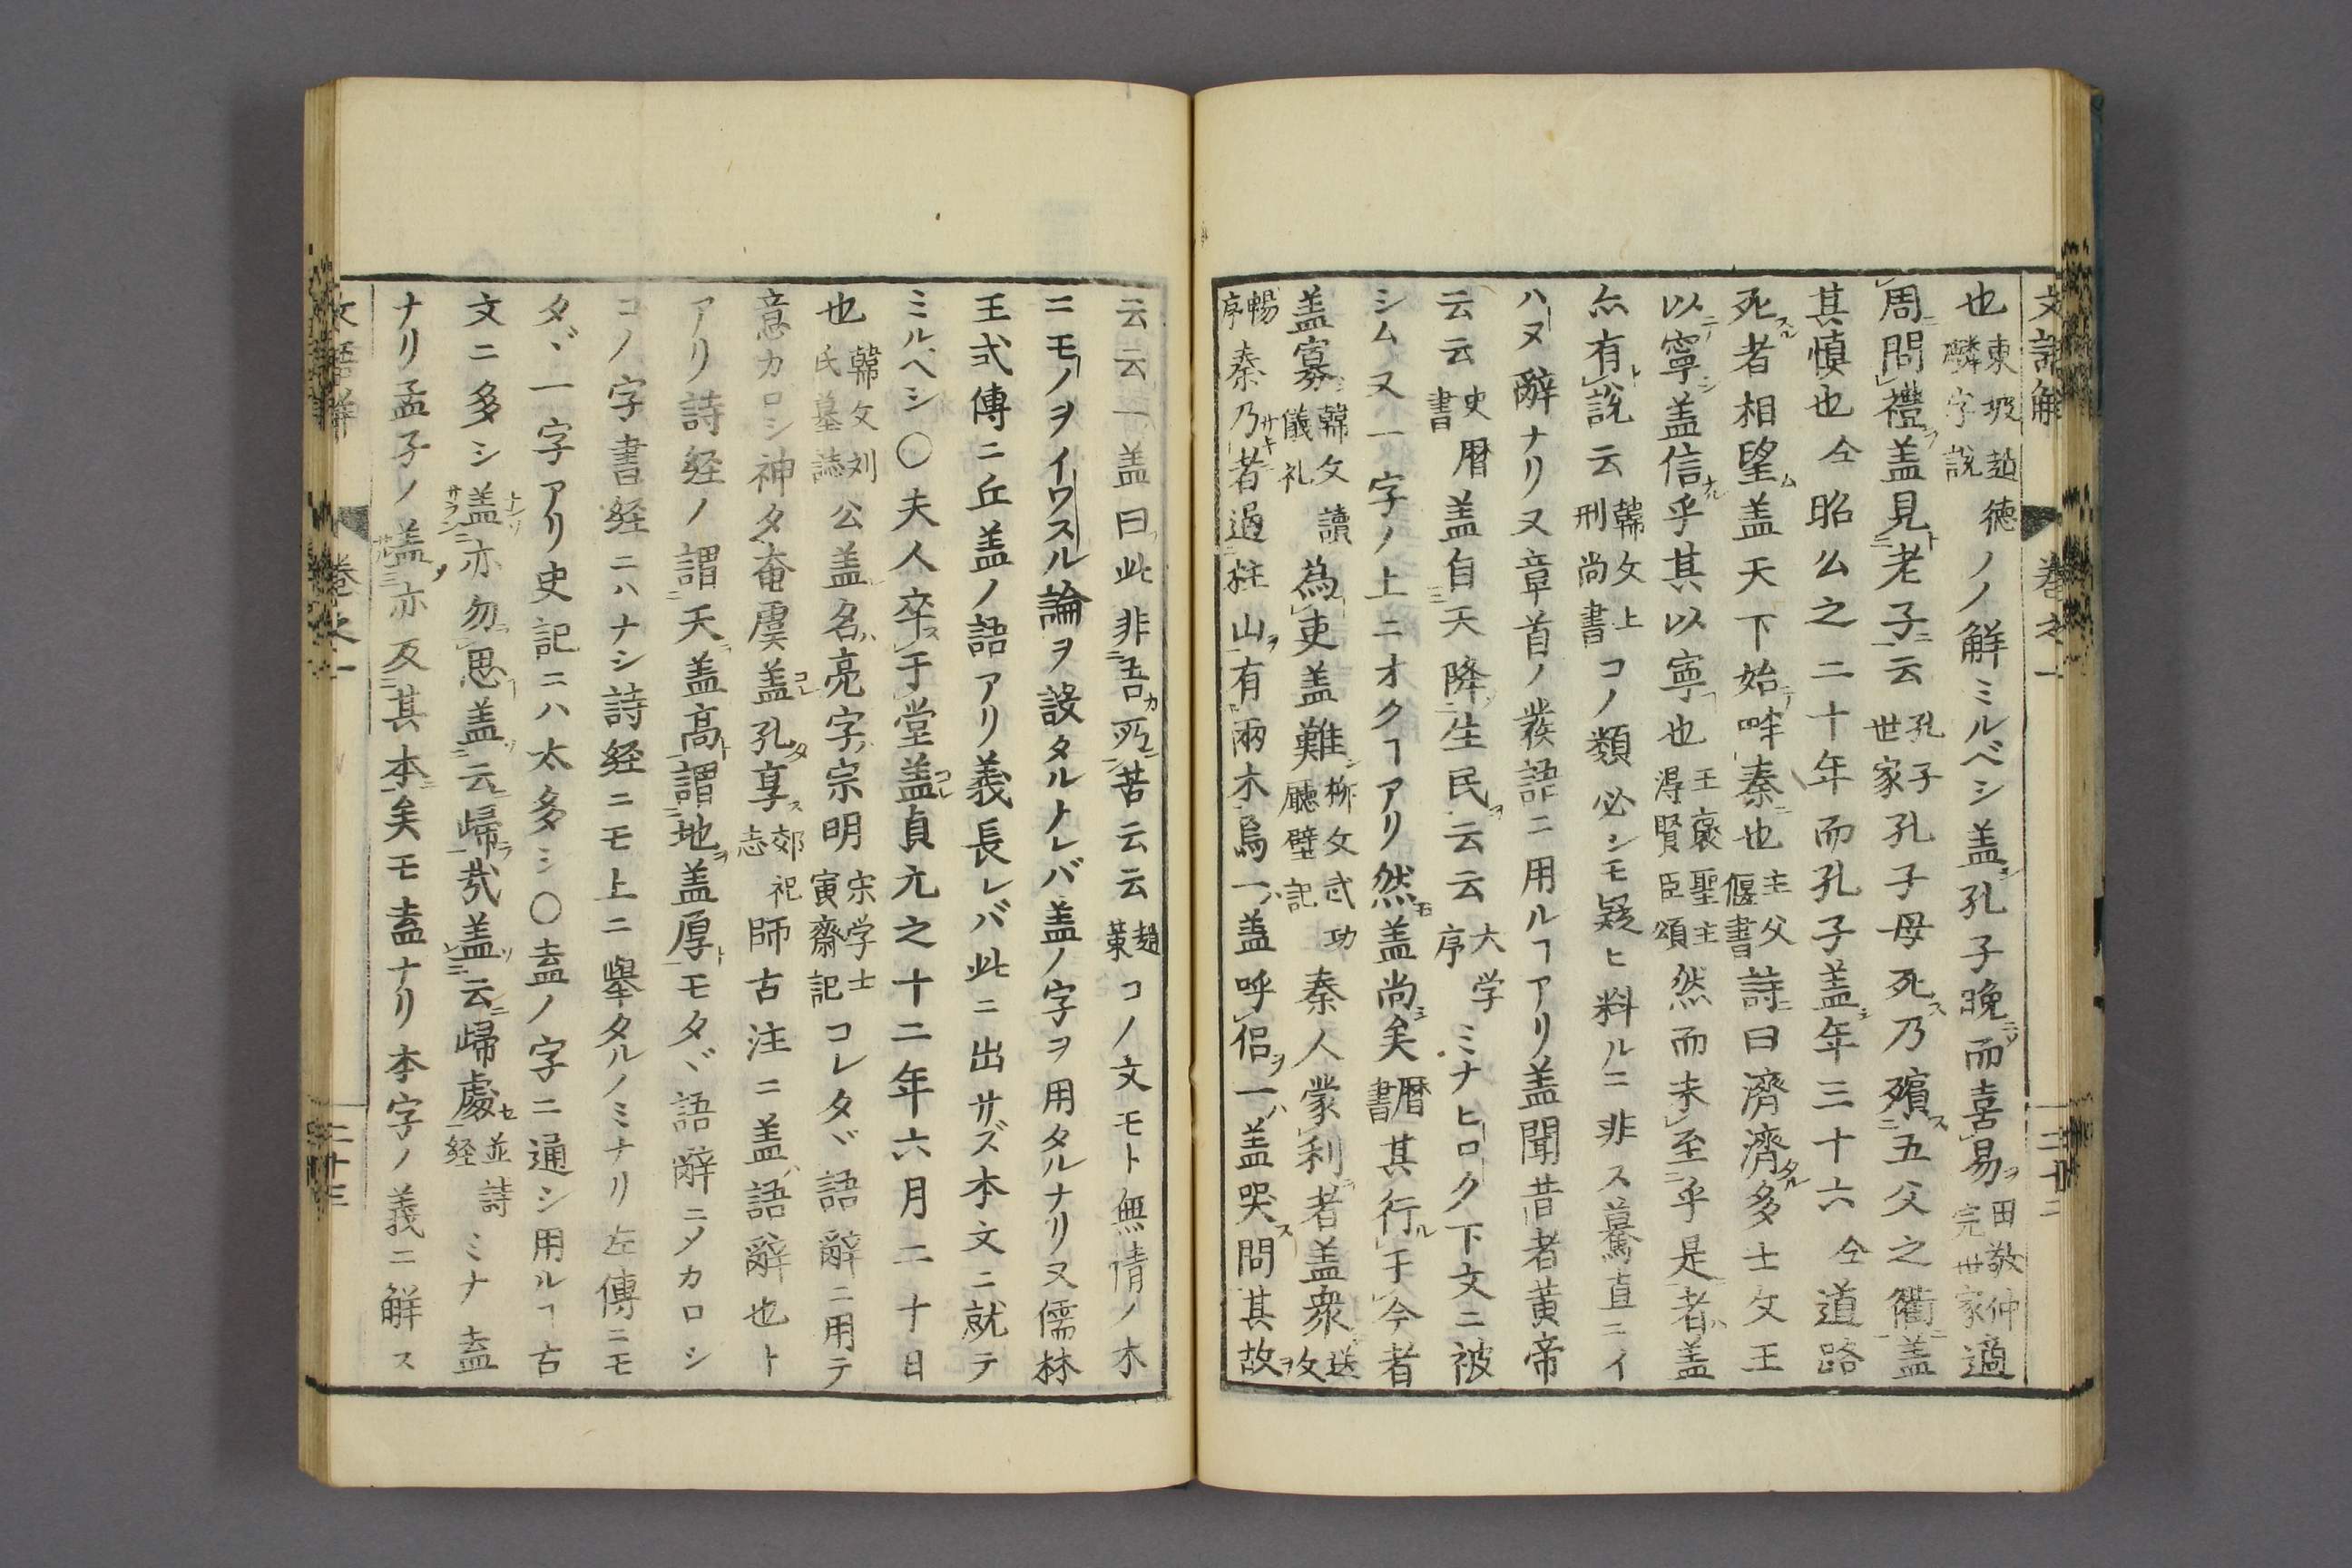 也東坡趙德麟字說ノノ解ミルベシ盖孔子晚而喜易田敬仲完世家適
周問禮盖見老子云孔子世家孔子母死乃殯五父之衢盖
其慎也仝昭公之二十年而孔子盖年三十六仝道路
死者相望盖天下始畔秦也主父偃書詩曰濟濟多士文王
以寧盖信乎其以寧也王褒聖主得賢臣頌然而未至乎是者盖
亦有說云韓文上刑尚書コノ類必シモ疑ヒ料ルニ非ス驀直ニイ
ハヌ辭ナリ又章首ノ發語ニ用ルヿアリ盖聞昔者黃帝
云云史書曆盖自天降生民云云大学序ミナヒロク下文ニ被
シム又一字ノ上ニオクヿアリ然盖尚矣曆書其行于今者
盖寡韓文讀儀礼為吏盖難柳文武功廳壁記秦人蒙利者盖衆送文
暢序秦乃者過柱山有兩木焉一盖呼侶一盖哭問其故
云云一盖曰此非吾所苦云云趙東コノ文モト無情ノ木
ニモノヲイワスル論ヲ設タルナレバ盖ノ字ヲ用タルナリ又儒林
王式傳ニ丘盖ノ語アリ義長レバ此ニ出サズ本文ニ就テ
ミルベシ〇夫人卒于堂盖貞元之十二年六月二十日
也韓文刘氏墓誌公盖名亮字宗明宗学士寅齋記コレタヾ語辭ニ用テ
意カロシ神夕奄虞盖孔享郊祀志師古注ニ盖語辭也ト
アリ詩経ノ謂天盖高謂地盖厚モタヾ語辭ニメカロシ
コノ字書経ニハナシ詩経ニモ上ニ舉タルノミナリ左傳ニモ
タヾ一字アリ史記ニハ太多シ〇盍ノ字ニ通シ用ルヿ古
文ニ多シ盖亦勿思盖云歸哉盖云歸處並詩経ミナ盍
ナリ孟子ノ盖亦反其本矣モ盍ナリ本字ノ義ニ解ス
卷之一
二十三